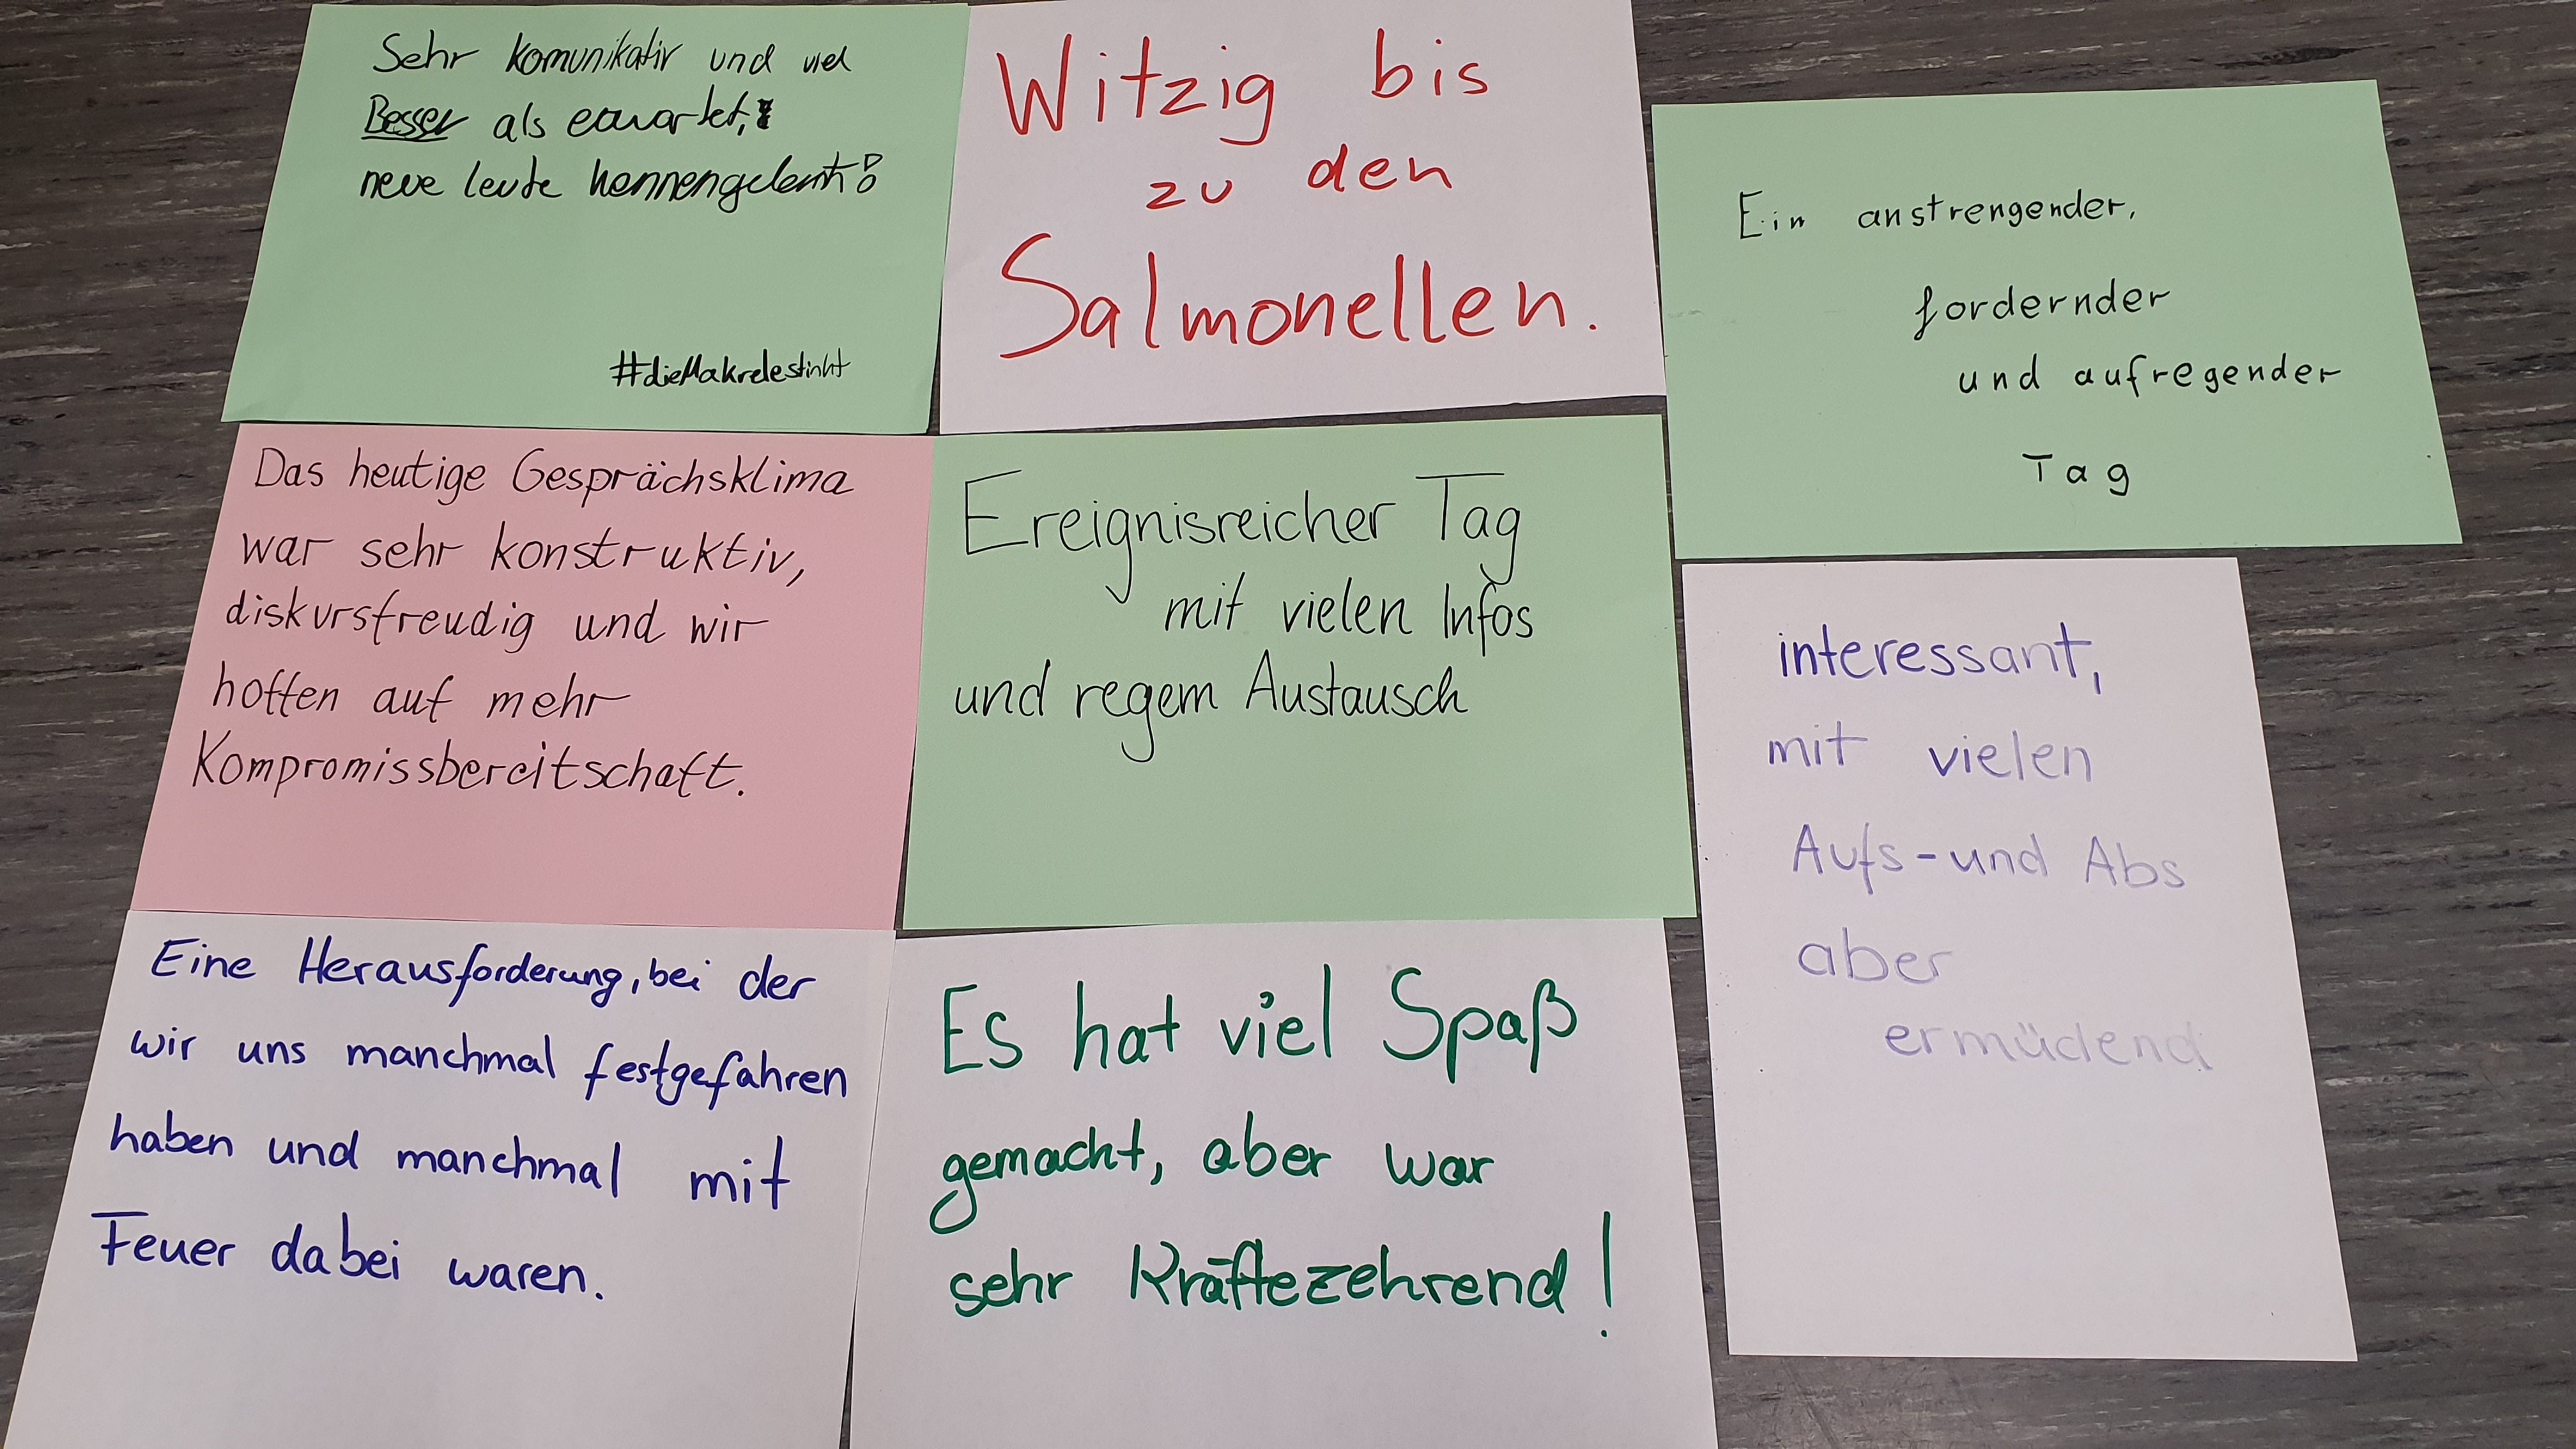 Sehr komunikativ und viel
Besser als erwartet,
neue leute kennengelernt!
#dieMakrelestinkt
Witzig bis
zu den
Salmonellen.
Ein anstrengender,
fordernder
und aufregender
Tag
Das heutige Gesprächsklima
war sehr konstruktiv,
diskursfreudig und wir
hoffen auf mehr
Kompromissbereitschaft.
Ereignisreicher Tag
mit vielen Infos
und regem Austausch
interessant,
mit vielen
Aufs-und Abs
aber
ermüdend
Eine Herausforderung, bei der
wir uns manchmal festgefahren
haben und manchmal mit
Feuer dabei waren.
Es hat viel Spaß
gemacht, aber war
sehr Kräftezehrend!